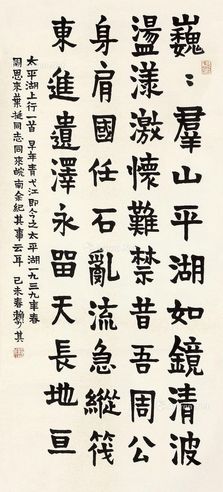 巍〻羣山平湖如鏡清波
盪漾激懷難禁昔吾周公
身肩國任石亂流急縱筏
東進遺澤永留天長地亘
太平湖上行一首 早年青弋江即今之太平湖一九三九年春
周恩來葉挺同志同來皖南余紀其事云耳 己未春 賴少其